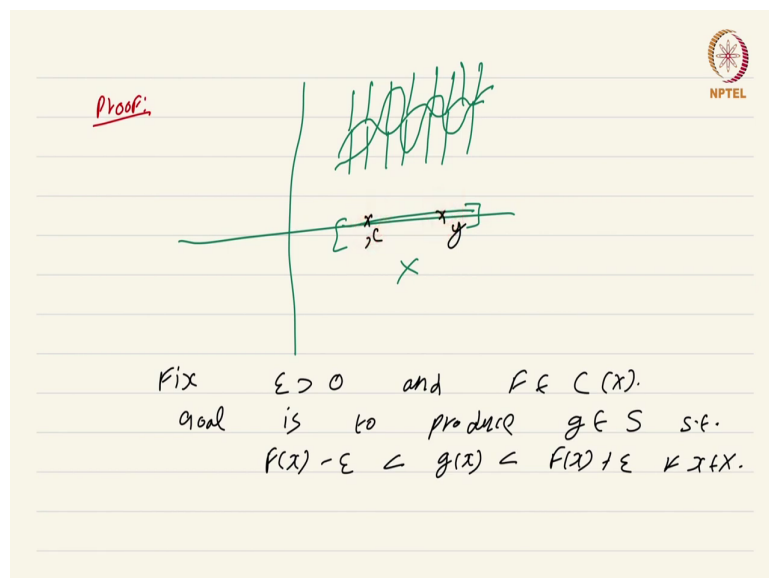 NPTEL
Proof:
x x
x y
X
Fix ε > 0 and F ∈ C(X).
Goal is to produce g ∈ S s.t.
F(x) - ε < g(x) < F(x) + ε ∀ x ∈ X.